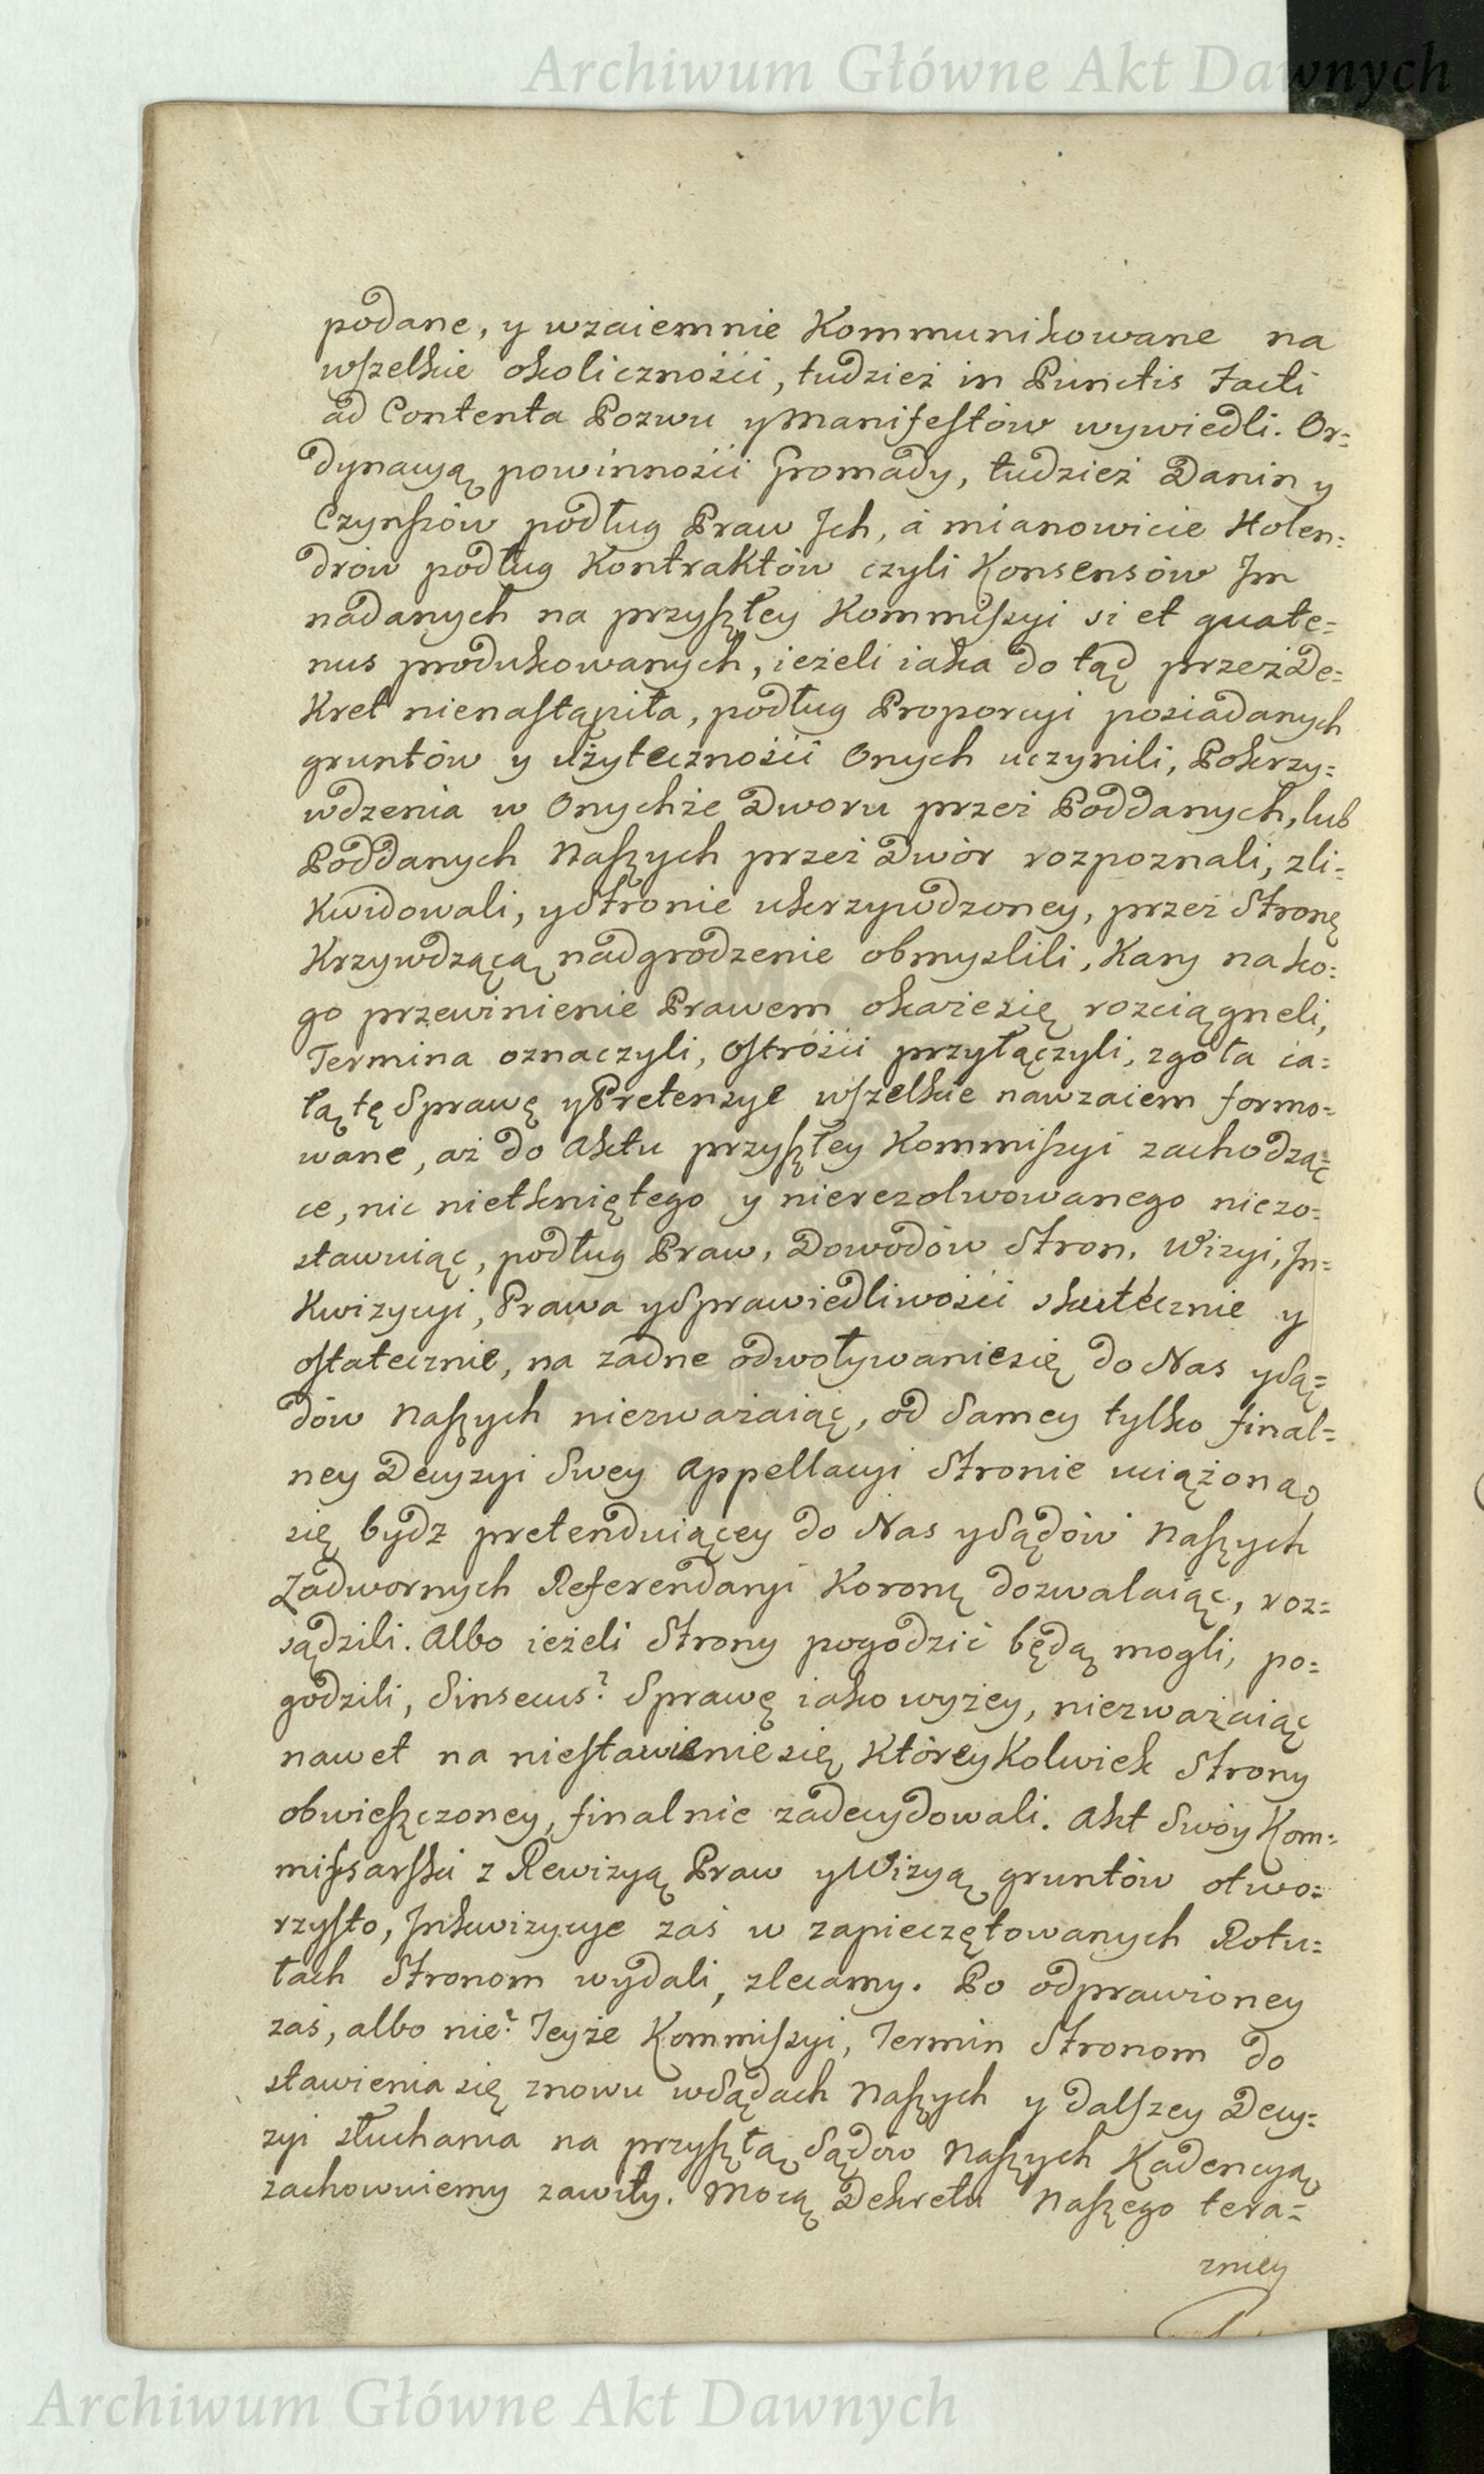 Archiwum Główne Akt Dawnych
podane, y wzaiemnie Kommunikowane na
wszelkie okoliczności, tudzież in Punctis Facti
ad Contenta Pozwu y Manifestów wywiedli. Or=
dynacyą powinności Gromady, tudzież Danin y
Czynszów podług Praw Ich, a mianowicie Holen=
drów podług Kontraktów czyli Konsensów Im
nadanych na przyszłey Kommissyi si et quate=
nus produkowanych, ieżeli iaka do tąd przez De=
kret nienastąpiła, podług Proporcyi posiadanych
gruntów y użyteczności Onych uczynili, Pokrzy=
wdzenia w Onychże Dworu przez Poddanych, lub
Poddanych Naszych przez Dwór rozpoznali, zli=
kwidowali, y Stronie ukrzywdzoney, przez Stronę
Krzywdzącą nadgrodzenie obmyslili, Kary na ko=
go przewinienie Prawem okaże się rozciągneli,
Termina oznaczyli, Ostrości przyłączyli, zgoła ca=
łą tę Sprawę y Pretensye wszelkie nawzaiem formo=
wane, aż do Aktu przyszłey Kommissyi zachodzą=
ce, nic nietkniętego y nierezolwowanego niezo=
stawuiąc, podług Praw, Dowodów Stron, Wizyi, In=
kwizycyi, Prawa y Sprawiedliwości skutecznie y
ostatecznie, na żadne odwoływanie się do Nas y Są=
dów Naszych niezważaiąc, od Samey tylko final=
ney Decyzyi Swey Appellacyi Stronie uciążoną
się bydz pretenduiącey do Nas y Sądów Naszych
Zadwornych Referendaryi Koronę dozwalaiąc, roz=
sądzili. Albo ieżeli Strony pogodzić będą mogli, po=
godzili, Sinsecus? Sprawę iako wyżey, niezważaiąc
nawet na niestawienie się którey kolwiek Strony
obwieszczoney, finalnie zadecydowali. Akt Swóy Kom=
missarski z Rewizyą Praw y Wizyą gruntów otwo=
rzysto, Inkwizycye zaś w zapieczętowanych Rotu=
łach Stronom wydali, zlecamy. Po odprawioney
zaś, albo nie? Teyże Kommissyi, Termin Stronom do
stawienia się znowu w Sądach Naszych y dalszey Decy=
zyi słuchania na przyszłą Sądów Naszych Kadencyą
zachowuiemy zawity. Mocą Dekretu Naszego tera=
zniey
Archiwum Główne Akt Dawnych